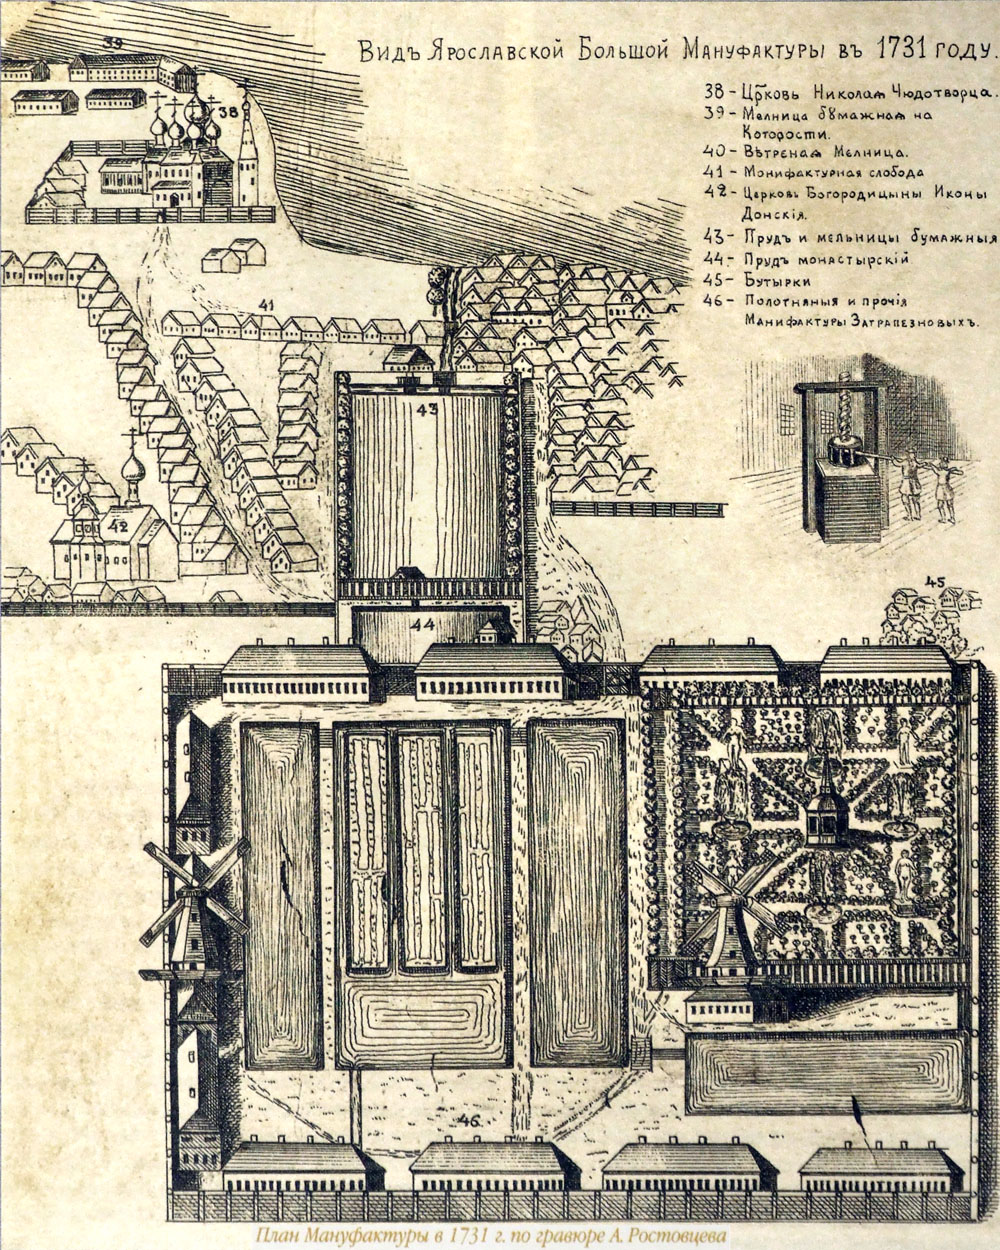 Видъ Ярославской Большой Мануфактуры въ 1731 году.
38 - Црковь Николая Чюдотворца.
39 - Мелница бумажная на
Которости.
40 - Вѣтреная Мелница.
41 - Монифактурная слобода
42 - Церковь Богородицыны Иконы
Донскія.
43 - Прудъ и мельницы бумажныя
44 - Прудъ монастырскій.
45 - Бутырки
46 - Полотняныя и прочія
Манифактуры Затрапезновыхъ.
39
38
41
43
42
44
45
46
План Мануфактуры в 1731 г. по гравюре А. Ростовцева